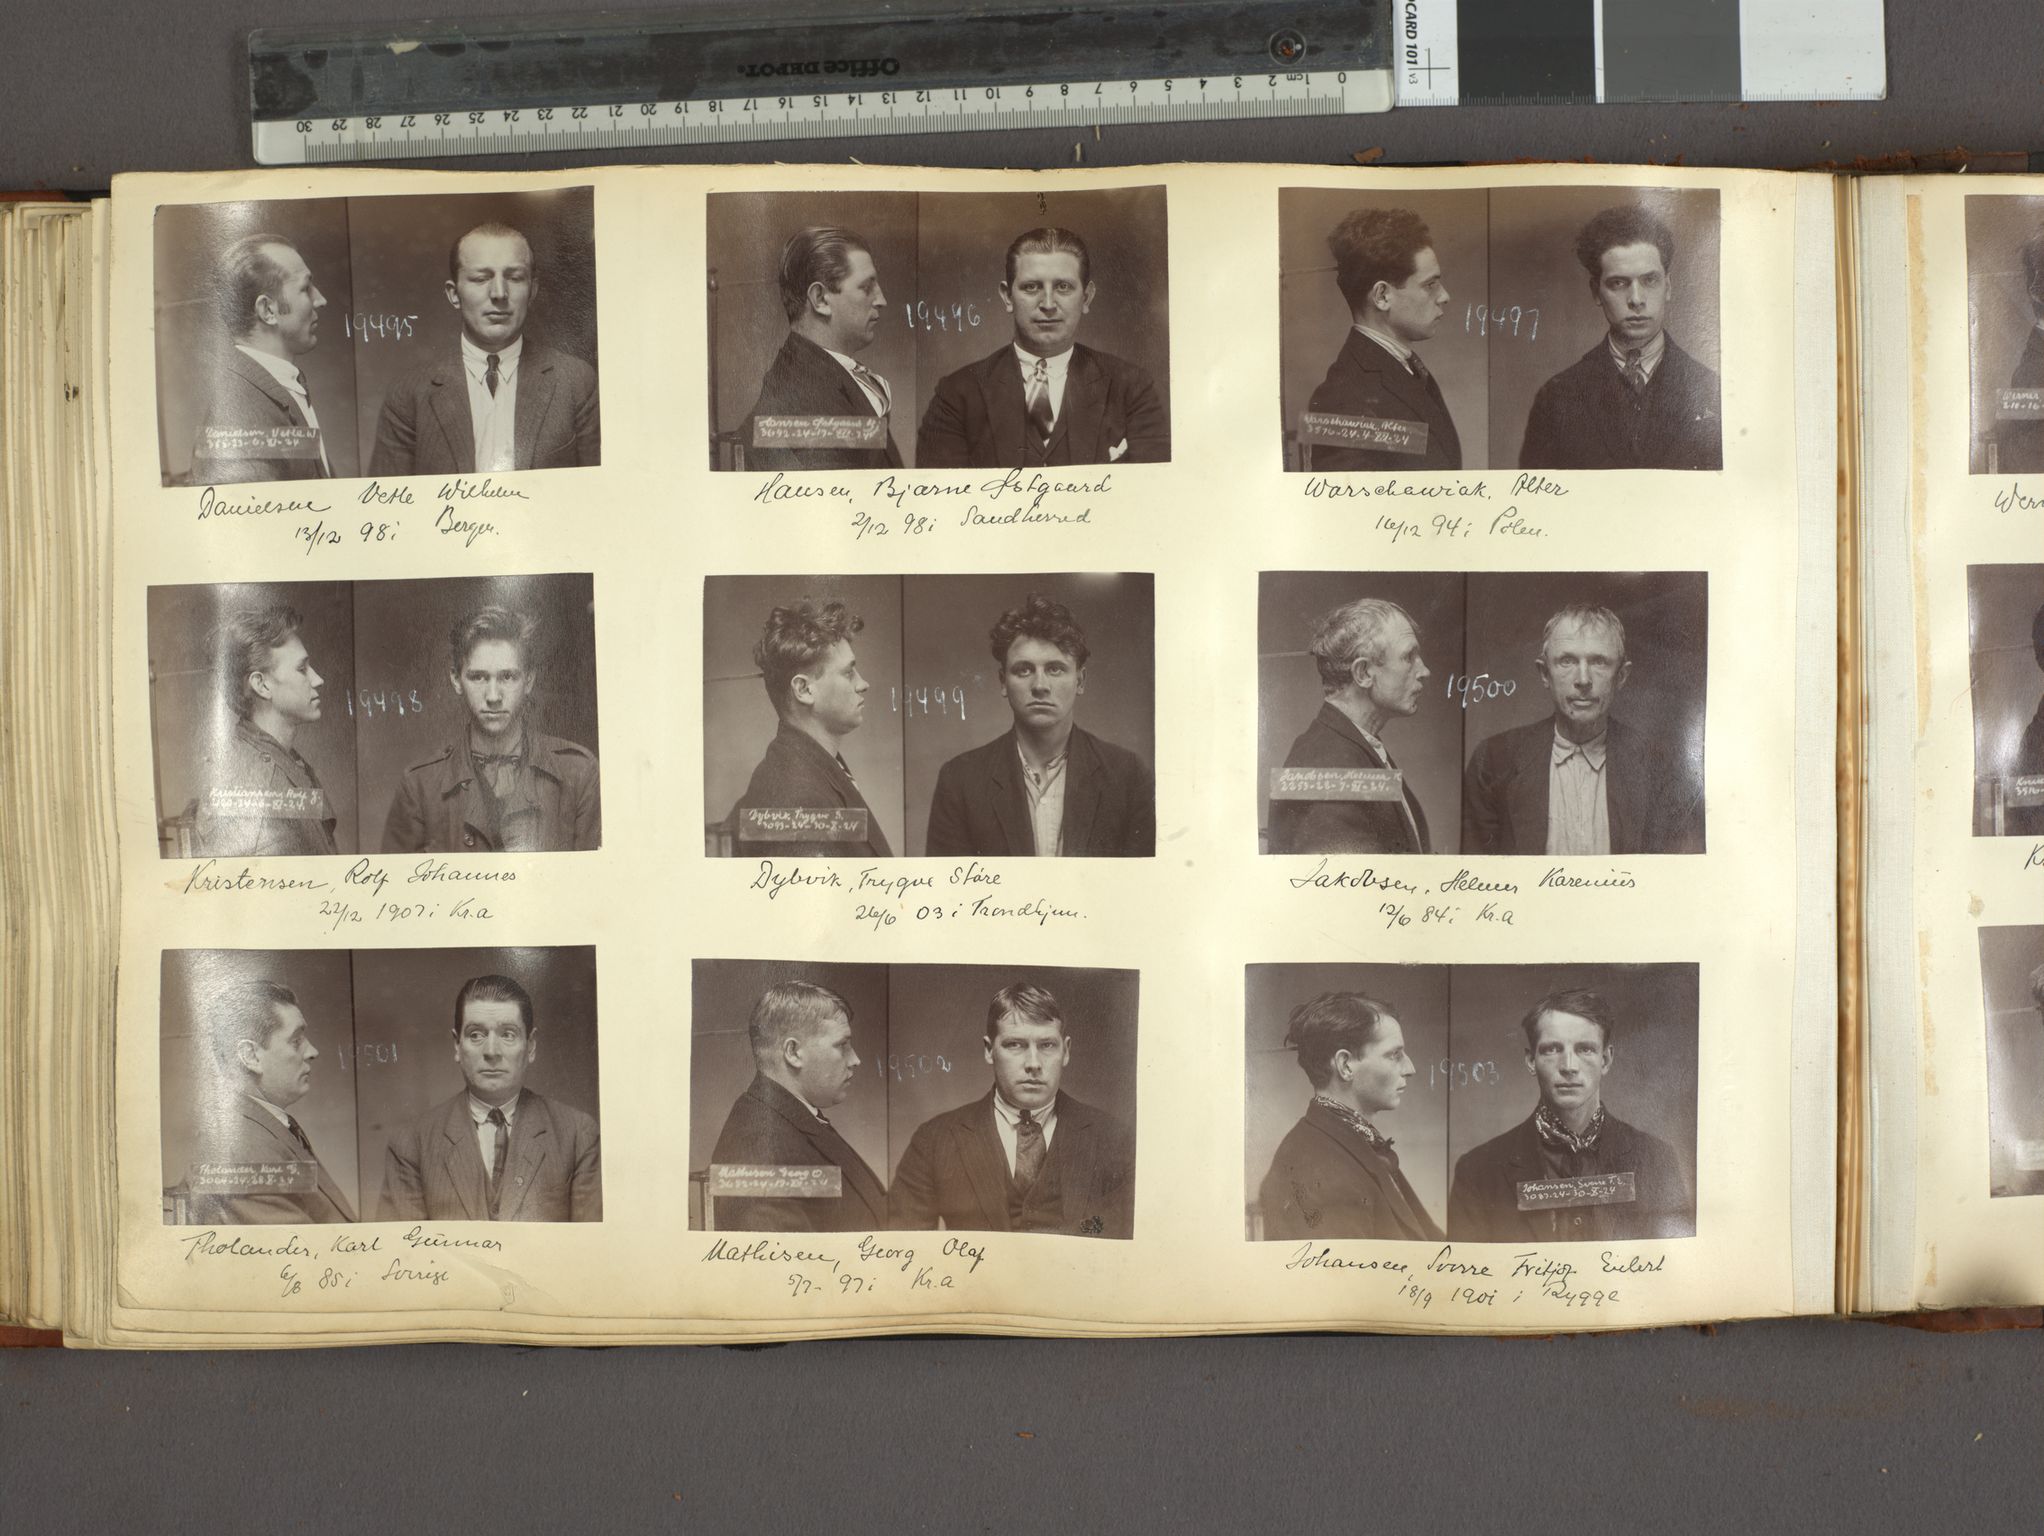 Office DEPOT
0 1cm 2 3 4 5 6 7 8 9 10 11 12 13 14 15 16 17 18 19 20 21 22 23 24 25 26 27 28 29 30
OCARD 101 v3
19495
Danielsen, Vetle W.
Danielsen Vetle Wilhelm
13/12 98 i Bergen.
19496
Hansen Østgaard B.
3692-24-17-XII-24
Hansen, Bjarne Østgaard
2/12 98 i Sandherred
19497
Warschawiak, Alter
3576-24-4-XII-24
Warschawiak, Alter
16/12 94 i Polen.
Wer
19498
Kristiansen, Rolf J.
Kristensen, Rolf Johannes
22/12 1907 i Kr.a
19499
Dybvik, Trygve S.
3093-24-30-X-24
Dybvik, Trygve Støre
26/6 03 i Trondhjem.
19500
Jacobsen, Helmer K.
2253-22-7-XI-24.
Jakobsen, Helmer Karenius
12/6 84 i Kr.a
19501
Tholander, Karl G.
3064-24-28-X-24
Tholander, Karl Gunnar
6/8 85 i Sverige
19502
Mathisen Georg O.
3692-24-17-XII-24
Mathisen, Georg Olaf
5/7- 97 i Kr.a
19503
Johansen, Sverre F. E.
3087-24-30-X-24
Johansen, Sverre Fritjof Eilert
18/9 1901 i Rygge